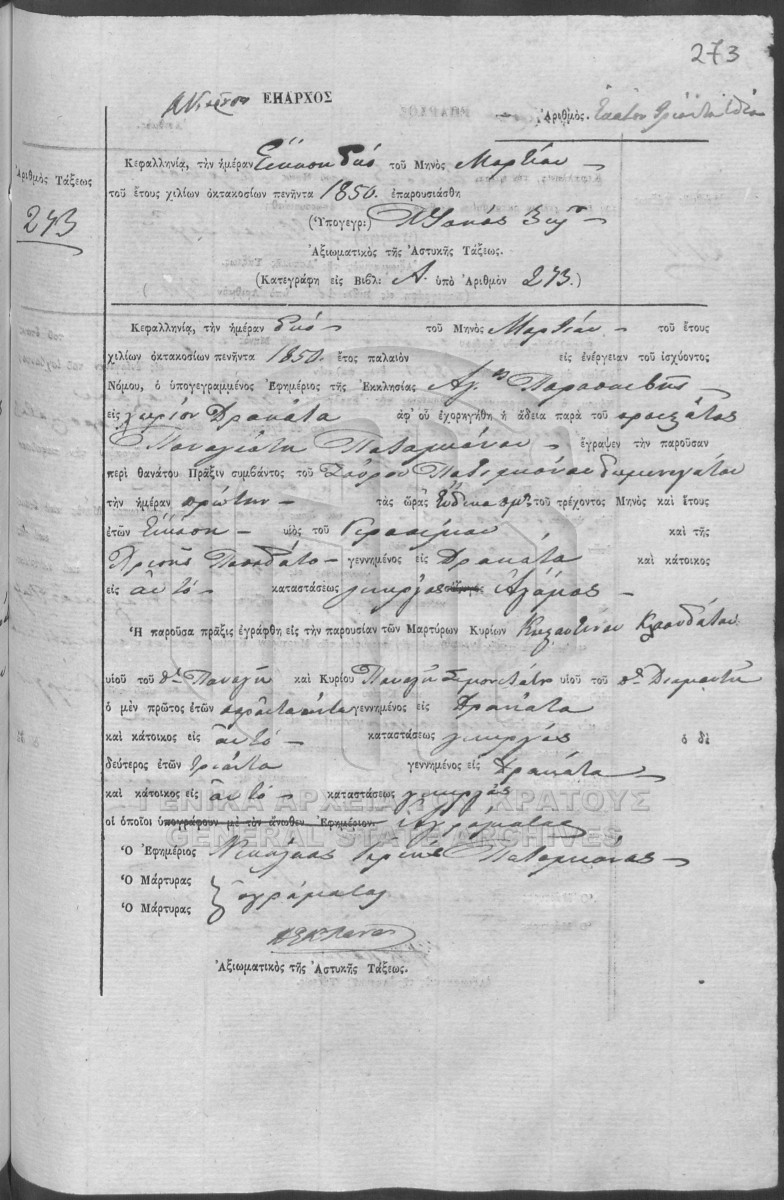 273
ΕΠΑΡΧΟΣ
Ἀριθμὸς.
Ἀριθμὸς Τάξεως
273
Κεφαλληνίᾳ, τὴν ἡμέραν Εἴκοση δύο τοῦ Μηνὸς Μαρτίου
τοῦ ἔτους χιλίων ὀκτακοσίων πενήντα 1850. ἐπαρουσιάσθη
(Ὑπογεγρ:)
Ἀξιωματικὸς τῆς Ἀστυκῆς Τάξεως.
(Κατεγράφη εἰς Βιβλ: Α. ὑπὸ Ἀριθμὸν 273.)
Κεφαλληνίᾳ, τὴν ἡμέραν δύο τοῦ Μηνὸς Μαρτίου τοῦ ἔτους
χιλίων ὀκτακοσίων πενήντα 1850. ἔτος παλαιὸν εἰς ἐνέργειαν τοῦ ἰσχύοντος
Νόμου, ὁ ὑπογεγραμμένος Ἐφημέριος τῆς Ἐκκλησίας Αγ: Παρασκευῆς
εἰς χωρίον Δρακάτα ἀφ' οὗ ἐχορηγήθη ἡ ἄδεια παρὰ τοῦ προεστῶτος
Παναγιότη Ποταμιάνου ἔγραψεν τὴν παροῦσαν
περὶ θανάτου Πρᾶξιν συμβάντος τοῦ
τὴν ἡμέραν πρώτην τὰς ὥρας ἕνδεκα τοῦ τρέχοντος Μηνὸς καὶ ἔτους
ἐτῶν Εἴκοση υἱὸς τοῦ Γερασίμου καὶ τῆς
γεννημένος εἰς Δρακάτα καὶ κάτοικος
εἰς αὐτό καταστάσεως γεωργός Ἄγαμος
Ἡ παροῦσα πρᾶξις ἐγράφθη εἰς τὴν παρουσίαν τῶν Μαρτύρων Κυρίων Κωσταντίνου
υἱοῦ τοῦ π: Παναγῆ καὶ Κυρίου Παναγῆ Σιμονετάτου υἱοῦ τοῦ π: Διαμαντῆ
ὁ μὲν πρῶτος ἐτῶν γεννημένος εἰς Δρακάτα
καὶ κάτοικος εἰς αὐτό καταστάσεως γεωργός ὁ δὲ
δεύτερος ἐτῶν τριάντα γεννημένος εἰς Δρακάτα
καὶ κάτοικος εἰς αὐτό καταστάσεως γεωργός
οἱ ὁποῖοι ὑπογράφουν μὲ τὸν ἄνωθεν Ἐφημέριον. ἀγράματος
Ὁ Ἐφημέριος Νικόλαος Ἱερεύς Ποταμιάνος
Ὁ Μάρτυρας
Ὁ Μάρτυρας ἀγράματοι
Ἀξιωματικὸς τῆς Ἀστυκῆς Τάξεως.
ΓΕΝΙΚΑ ΑΡΧΕΙΑ ΤΟΥ ΚΡΑΤΟΥΣ
GENERAL STATE ARCHIVES